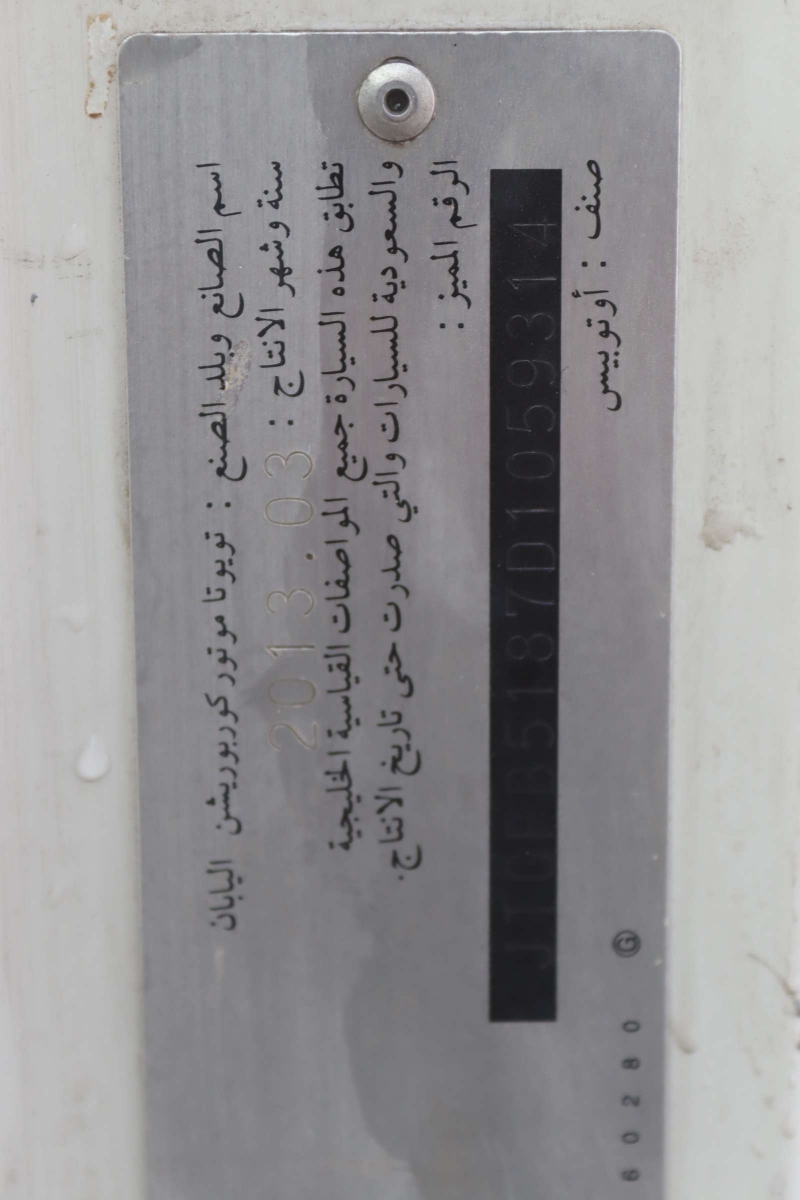 اسم الصانع وبلد الصنع : تويوتا موتور كوربوريشن اليابان
سنة وشهر الانتاج : 2013.03
تطابق هذه السيارة جميع المواصفات القياسية الخليجية
والسعودية للسيارات والتي صدرت حتى تاريخ الانتاج.
الرقم المميز :
JTGFB5187D1059314
صنف : أوتوبيس
60280 Ⓖ